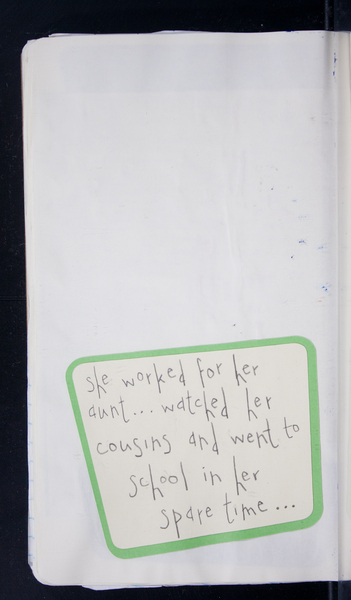 she worked for her
aunt... watched her
cousins and went to
school in her
spare time...